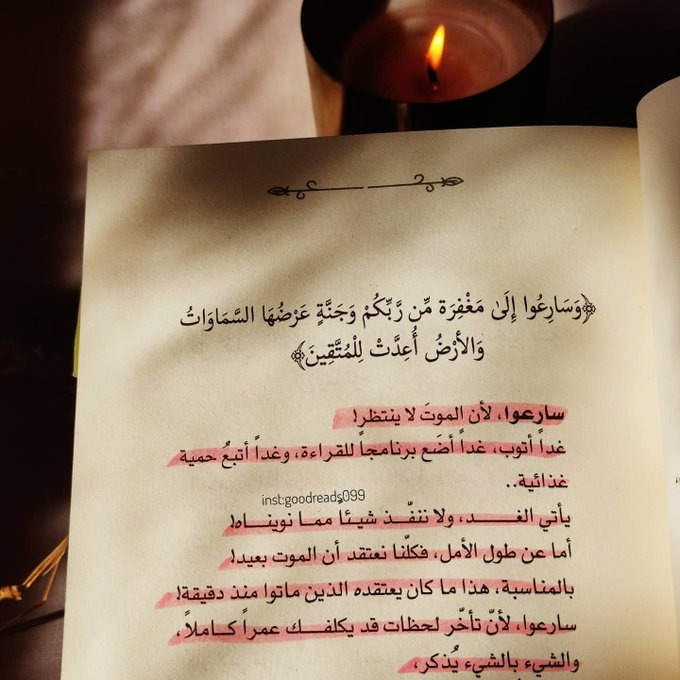 ﴿وَسَارِعُوا إِلَىٰ مَغْفِرَة مِّن رَّبِّكُمْ وَجَنَّةٍ عَرْضُهَا السَّمَاوَاتُ
وَالأرْضُ أُعِدَّتْ لِلْمُتَّقِينَ﴾
سارعوا، لأن الموتَ لا ينتظر!
غداً أتوب، غداً أضَع برنامجاً للقراءة، وغداً أتبعُ حمية
غذائية..
inst:goodreads099
يأتي الغـــد، ولا ننفّـذ شيـئاً ممـا نوينـاه!
أما عن طول الأمل، فكلّنا نعتقد أن الموت بعيد!
بالمناسبة، هذا ما كان يعتقده الذين ماتوا منذ دقيقة!
سارعوا، لأنّ تأخّر لحظات قد يكلفـك عمراً كـاملاً،
والشيء بالشيء يُذكر،